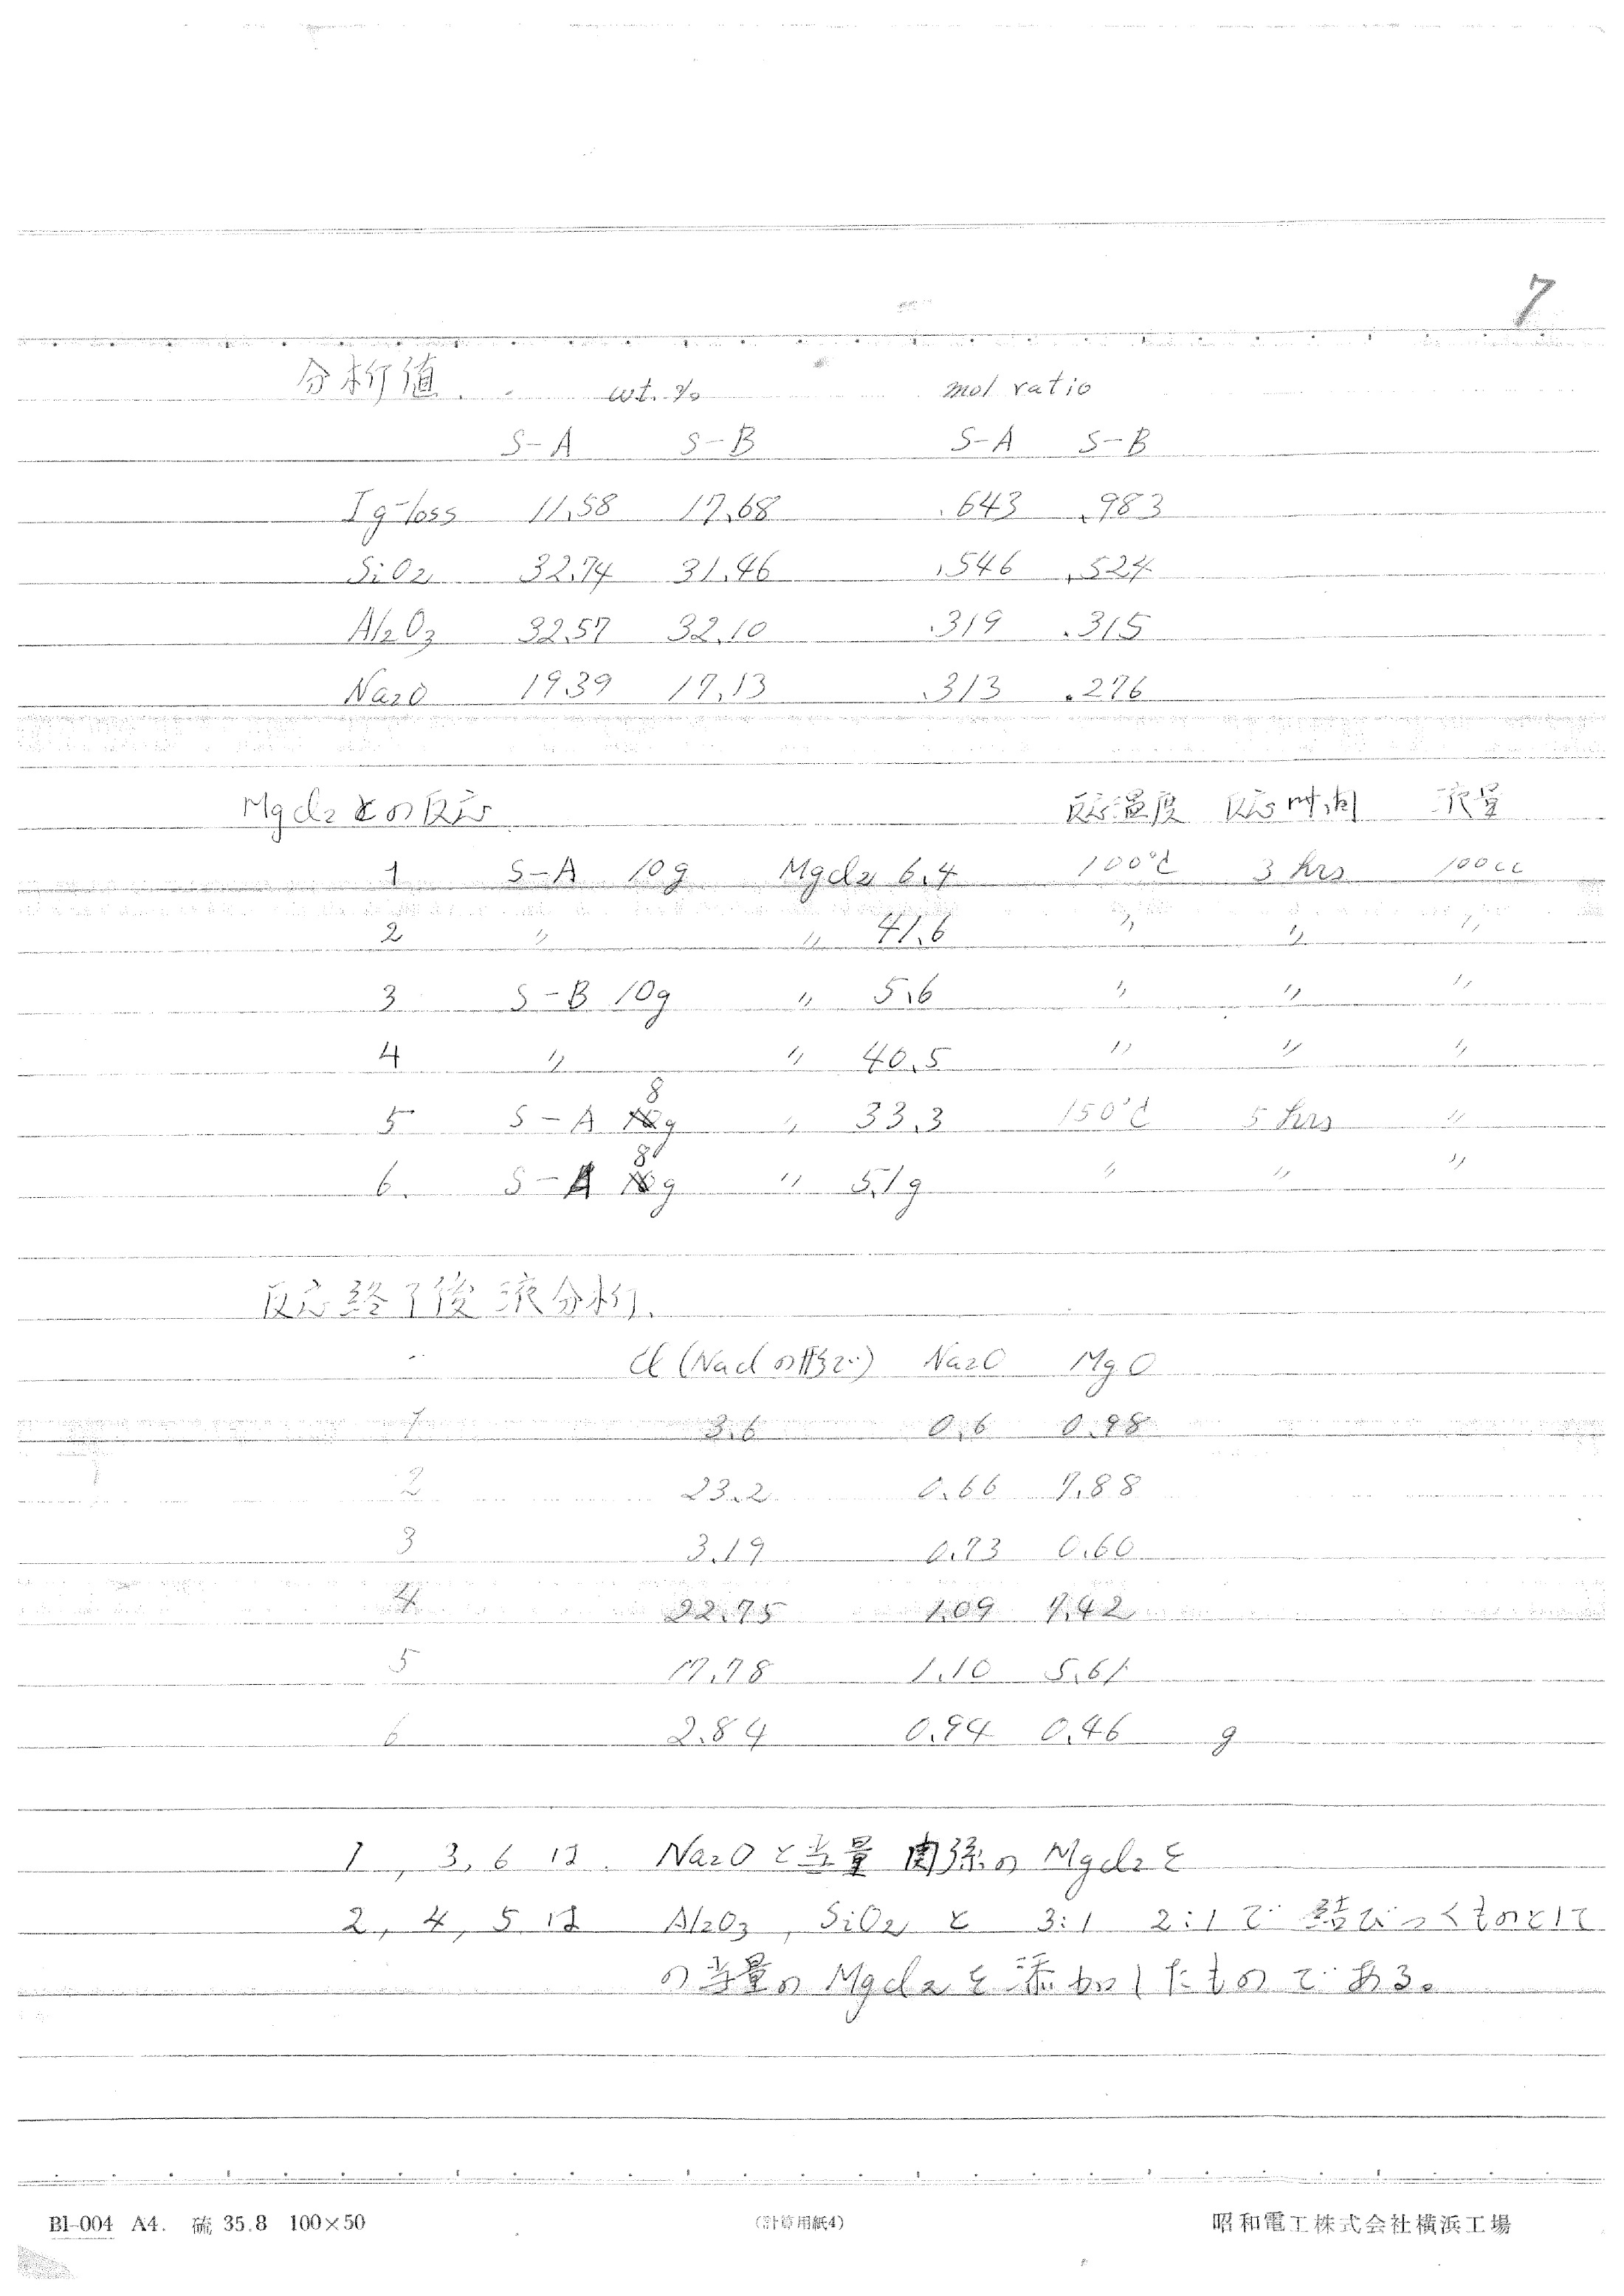 7
分析値. wt.% mol ratio
S-A S-B S-A S-B
Ig-loss 11.58 17.68 .643 .983
SiO2 32.74 31.46 .546 .524
Al2O3 32.57 32.10 .319 .315
Na2O 19.39 17.13 .313 .276
MgCl2との反応 反応温度 反応時間 液量
1 S-A 10g MgCl2 6.4 100℃ 3 hrs 100cc
2 〃 〃 41.6 〃 〃 〃
3 S-B 10g 〃 5.6 〃 〃 〃
4 〃 〃 40.5 〃 〃 〃
5 S-A 8g 〃 33.3 150℃ 5 hrs 〃
6. S-A 8g 〃 5.1g 〃 〃 〃
反応終了後液分析.
Cl (NaClの形で) Na2O MgO
1 3.6 0.6 0.98
2 23.2 0.66 7.88
3 3.19 0.73 0.60
4 22.75 1.09 7.42
5 17.78 1.10 5.61
6 2.84 0.94 0.46 g
1, 3, 6 は. Na2Oと当量関係のMgCl2を
2, 4, 5 は Al2O3, SiO2 と 3:1 2:1で結びつくものとして
の当量のMgCl2を添加したものである。
BI-004 A4. 硫 35.8 100×50 (計算用紙4) 昭和電工株式会社横浜工場